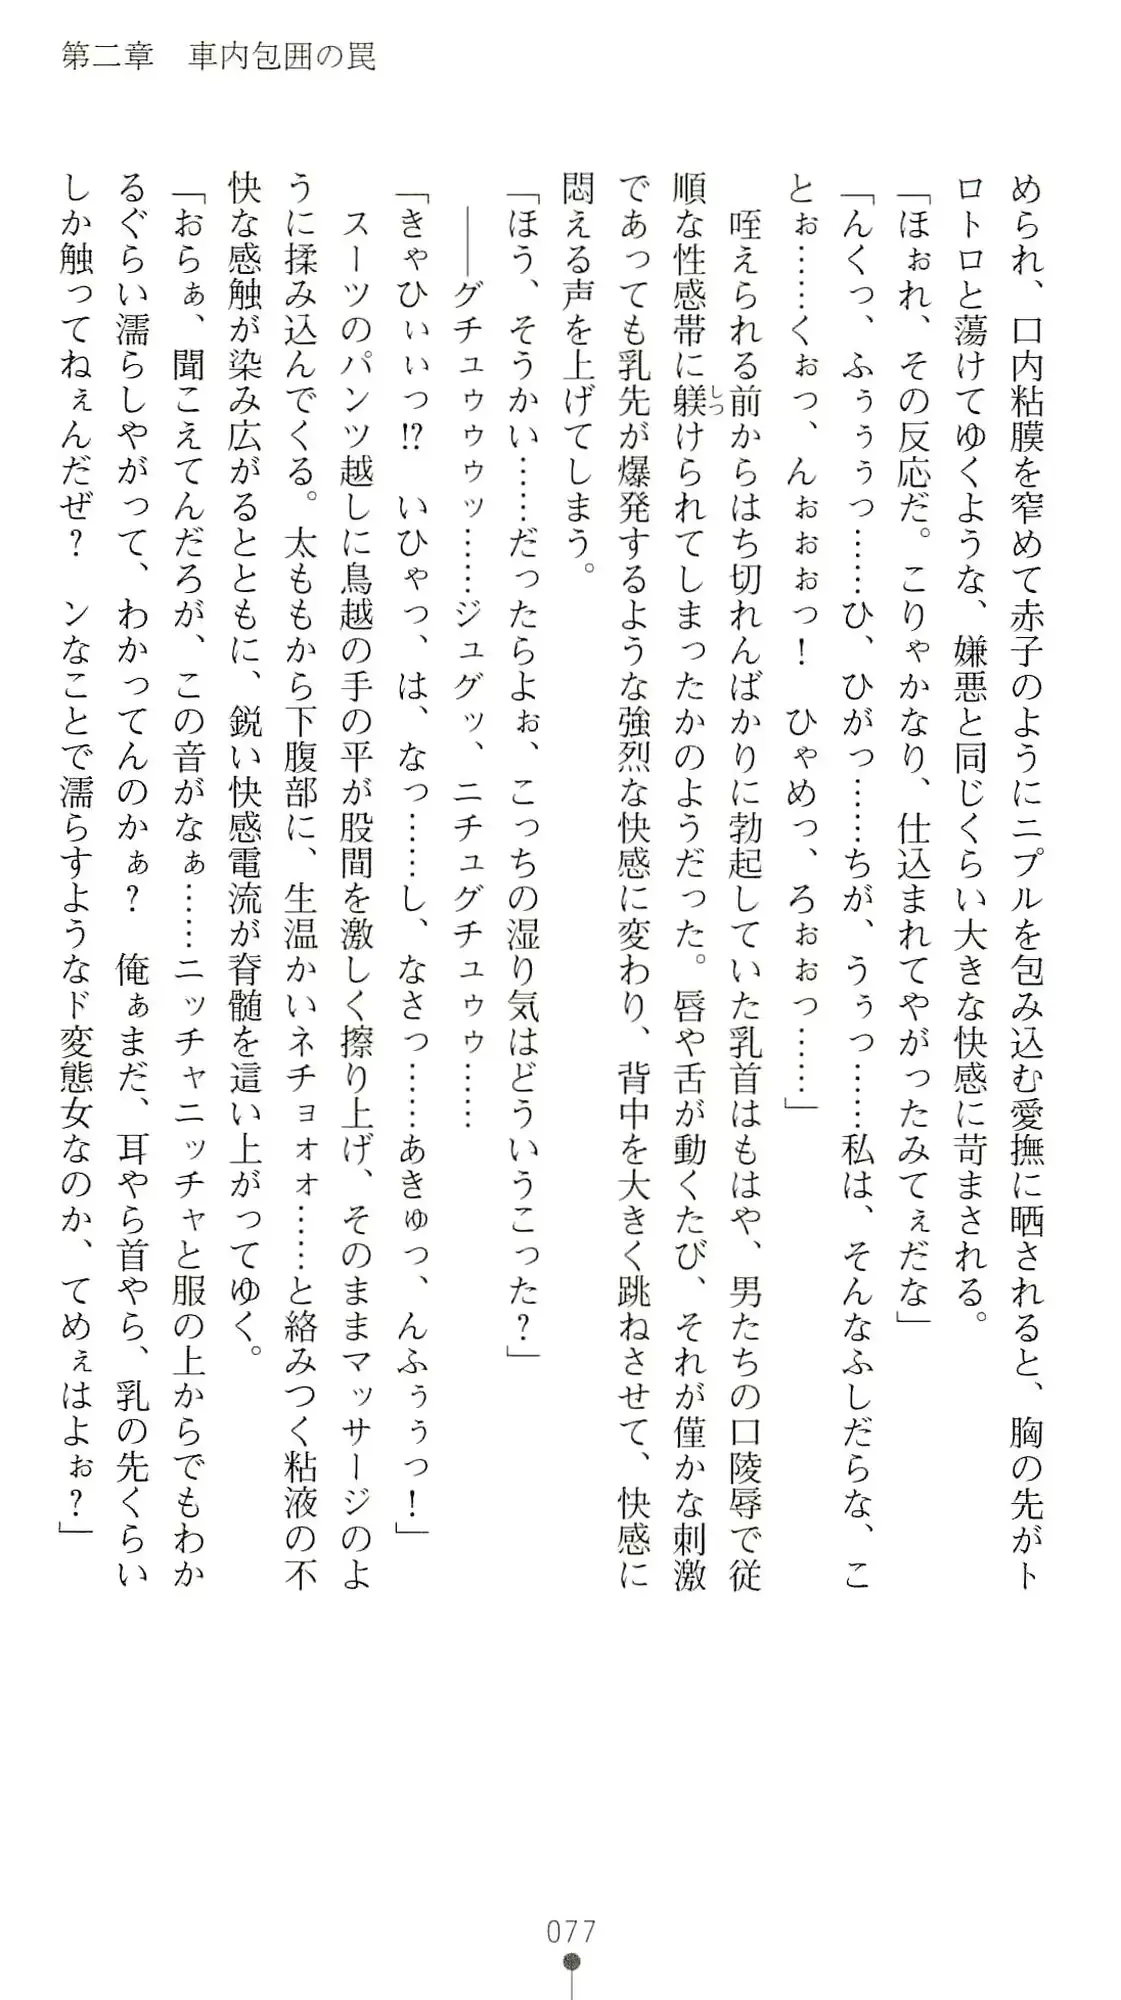 第二章　車内包囲の罠
められ、口内粘膜を窄めて赤子のようにニプルを包み込む愛撫に晒されると、胸の先がト
ロトロと蕩けてゆくような、嫌悪と同じくらい大きな快感に苛まされる。
「ほぉれ、その反応だ。こりゃかなり、仕込まれてやがったみてぇだな」
「んくっ、ふぅぅぅっ……ひ、ひがっ……ちが、うぅっ……私は、そんなふしだらな、こ
とぉ……くぉっ、んぉぉぉっ！　ひゃめっ、ろぉぉっ……」
　咥えられる前からはち切れんばかりに勃起していた乳首はもはや、男たちの口陵辱で従
順な性感帯に躾けられてしまったかのようだった。唇や舌が動くたび、それが僅かな刺激
であっても乳先が爆発するような強烈な快感に変わり、背中を大きく跳ねさせて、快感に
悶える声を上げてしまう。
「ほう、そうかい……だったらよぉ、こっちの湿り気はどういうこった？」
　――グチュゥゥゥッ……ジュグッ、ニチュグチュゥゥ……
「きゃひぃぃっ!?　いひゃっ、は、なっ……し、なさっ……あきゅっ、んふぅぅっ！」
　スーツのパンツ越しに鳥越の手の平が股間を激しく擦り上げ、そのままマッサージのよ
うに揉み込んでくる。太ももから下腹部に、生温かいネチョォォ……と絡みつく粘液の不
快な感触が染み広がるとともに、鋭い快感電流が脊髄を這い上がってゆく。
「おらぁ、聞こえてんだろが、この音がなぁ……ニッチャニッチャと服の上からでもわか
るぐらい濡らしやがって、わかってんのかぁ？　俺ぁまだ、耳やら首やら、乳の先くらい
しか触ってねぇんだぜ？　ンなことで濡らすようなド変態女なのか、てめぇはよぉ？」
しつ
077